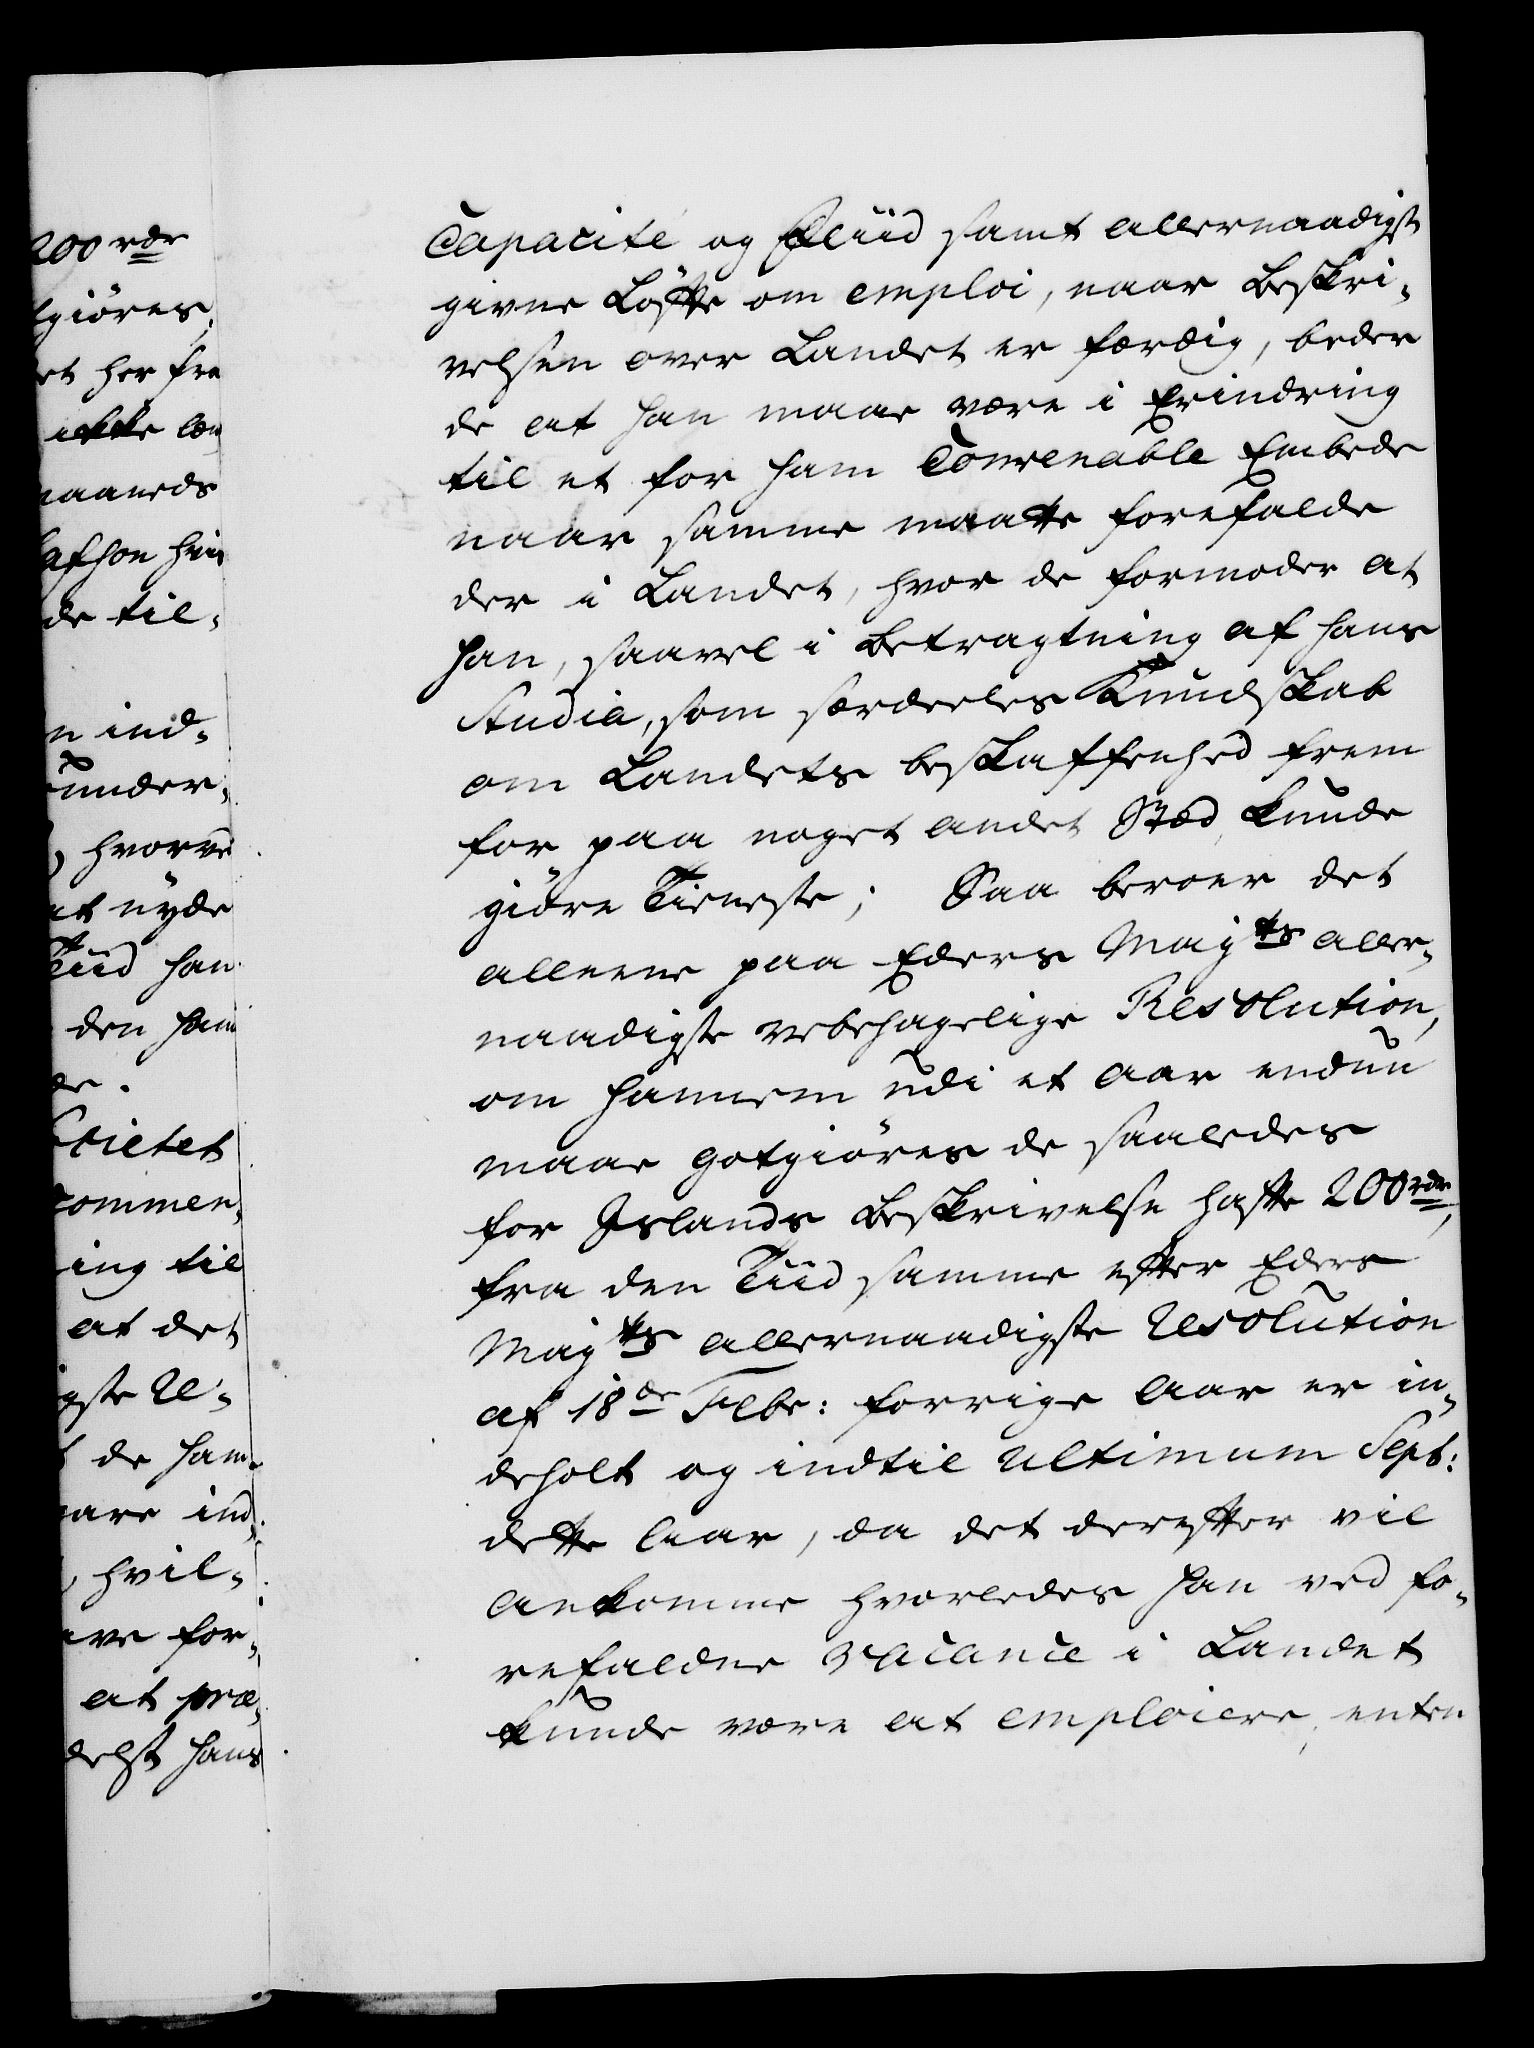 200 rdr
giöres,
et her fra
ikke læn
maaneds
afsen hin
de til-
n ind-
under-
hvorved
at nyde
Tiid han
den ham
de.
Societet
kommen,
ing til
at det
igste Re-
de ham
vare ind,
, hvil-
ave for-
at præ-
delst hans
Capacite og Fliid samt allernaadigst
givne Løfte om emploi, naar Beskri-
velsen over Landet er færdig, beder
de at han maae være i Erindring
til et for ham Convenable Embede
naar samme maatte forefalde
der i Landet, hvor de formoder at
han, saavel i Betragtning af hans
Studia, som særdeeles Kundskab
om Landets beskaffenhed frem
for paa noget andet Stæd kunde
giöre Tieneste; Saa beroer det
alleene paa Eders Mayts aller-
naadigste velbehagelige Resolution,
om hannem udi et Aar endnu
maae gotgiöres de saaledes
for Islands Beskrivelse hafte 200 rdr,
fra den Tiid samme efter Eders
Mayts allernaadigste Resolution
af 18de Febr: forrige Aar er in-
deholt og indtil ultimum Sept:
dette Aar, da det derefter vil
ankomme hvorledes han ved fo-
refaldne vacance i Landet
kunde være at emploiere, enten